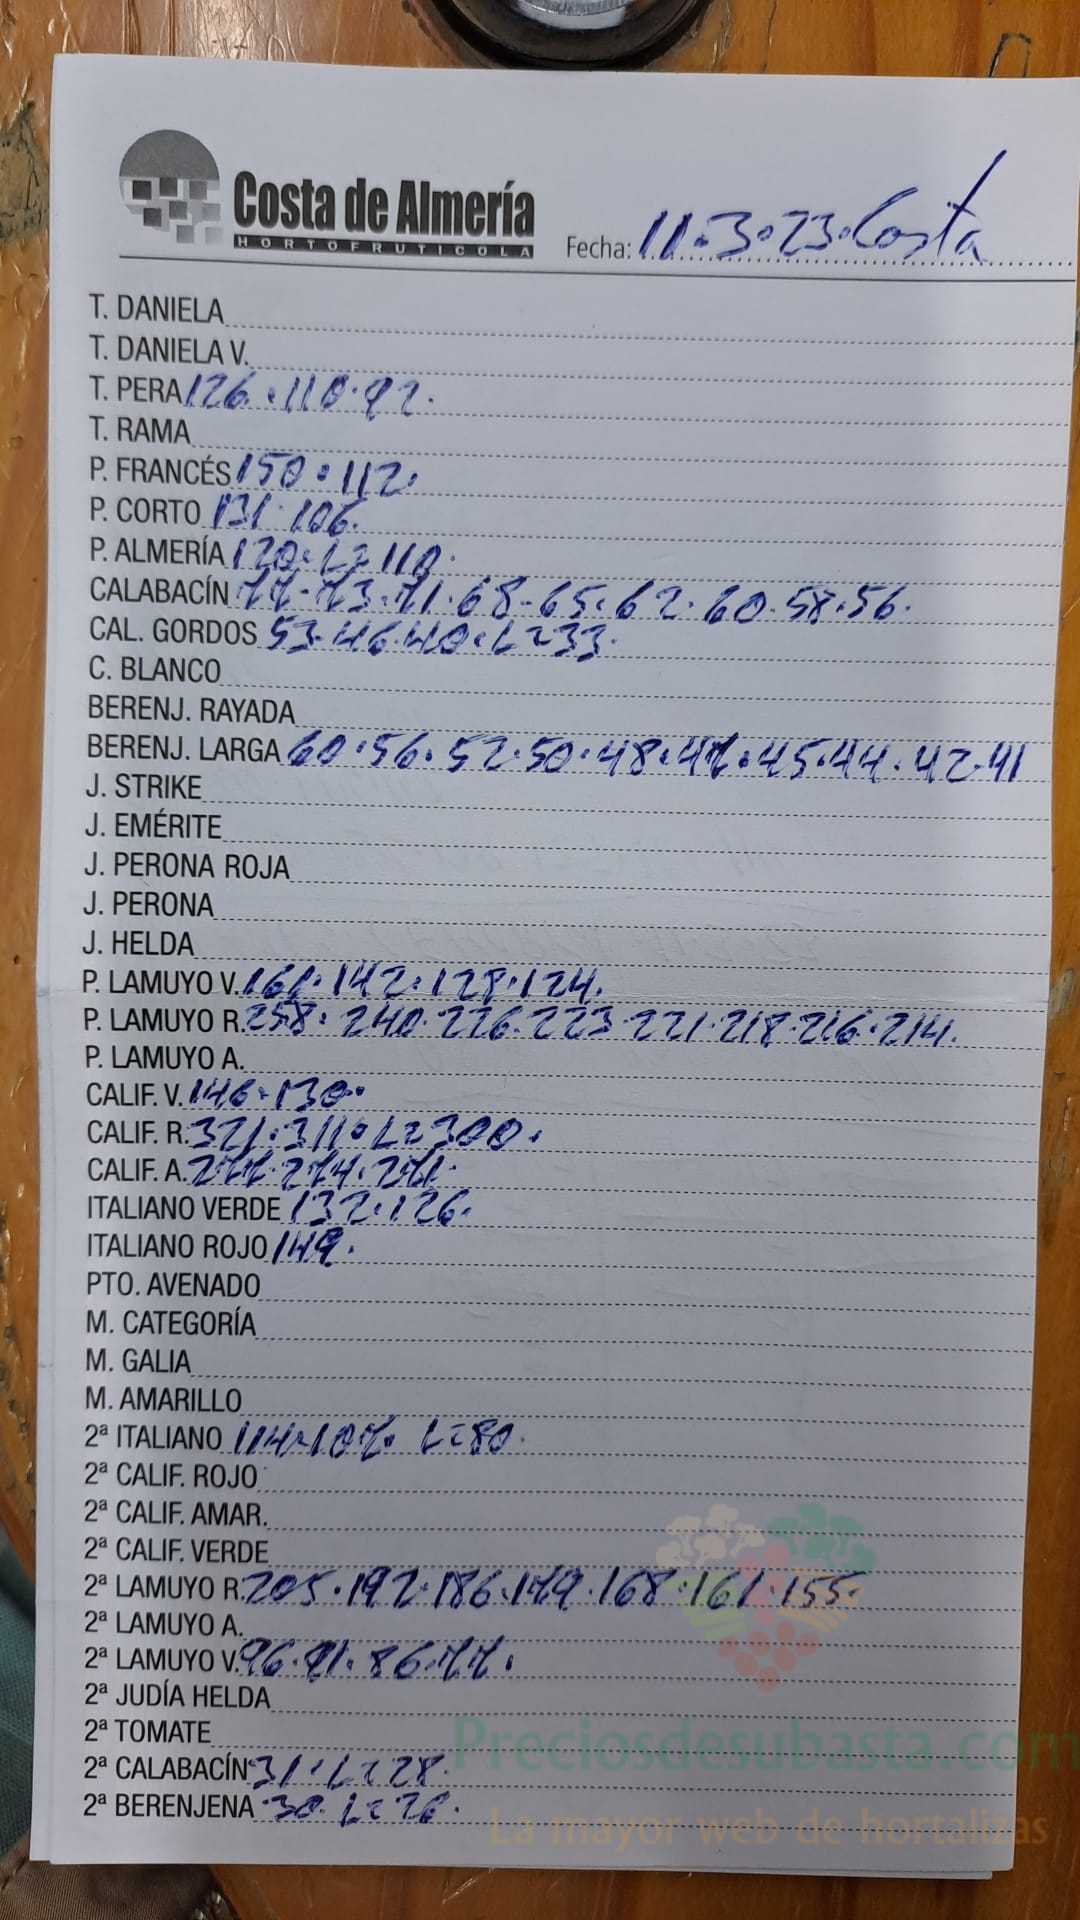 Costa de Almería
HORTOFRUTICOLA
Fecha: 11.3.23. Costa
T. DANIELA
T. DANIELA V.
T. PERA 126.110.92.
T. RAMA
P. FRANCÉS 150.112.
P. CORTO 131.106.
P. ALMERÍA 120. L=110.
CALABACÍN 77.73.71.68.65.62.60.58.56.
CAL. GORDOS 53.46.40. L=33.
C. BLANCO
BERENJ. RAYADA
BERENJ. LARGA 60.56.52.50.48.47.45.44.42.41
J. STRIKE
J. EMÉRITE
J. PERONA ROJA
J. PERONA
J. HELDA
P. LAMUYO V. 161.142.128.124.
P. LAMUYO R. 258.240.226.223.221.218.216.214.
P. LAMUYO A.
CALIF. V. 146.130.
CALIF. R. 321.311. L=300.
CALIF. A. 277.274.271.
ITALIANO VERDE 132.126.
ITALIANO ROJO 149.
PTO. AVENADO
M. CATEGORÍA
M. GALIA
M. AMARILLO
2ª ITALIANO 114.107. L=80.
2ª CALIF. ROJO
2ª CALIF. AMAR.
2ª CALIF. VERDE
2ª LAMUYO R. 205.192.186.179.168.161.155.
2ª LAMUYO A.
2ª LAMUYO V. 96.91.86.77.
2ª JUDÍA HELDA
2ª TOMATE
2ª CALABACÍN 31. L=28.
2ª BERENJENA 30. L=26.
Preciosdesubasta.com
La mayor web de hortalizas